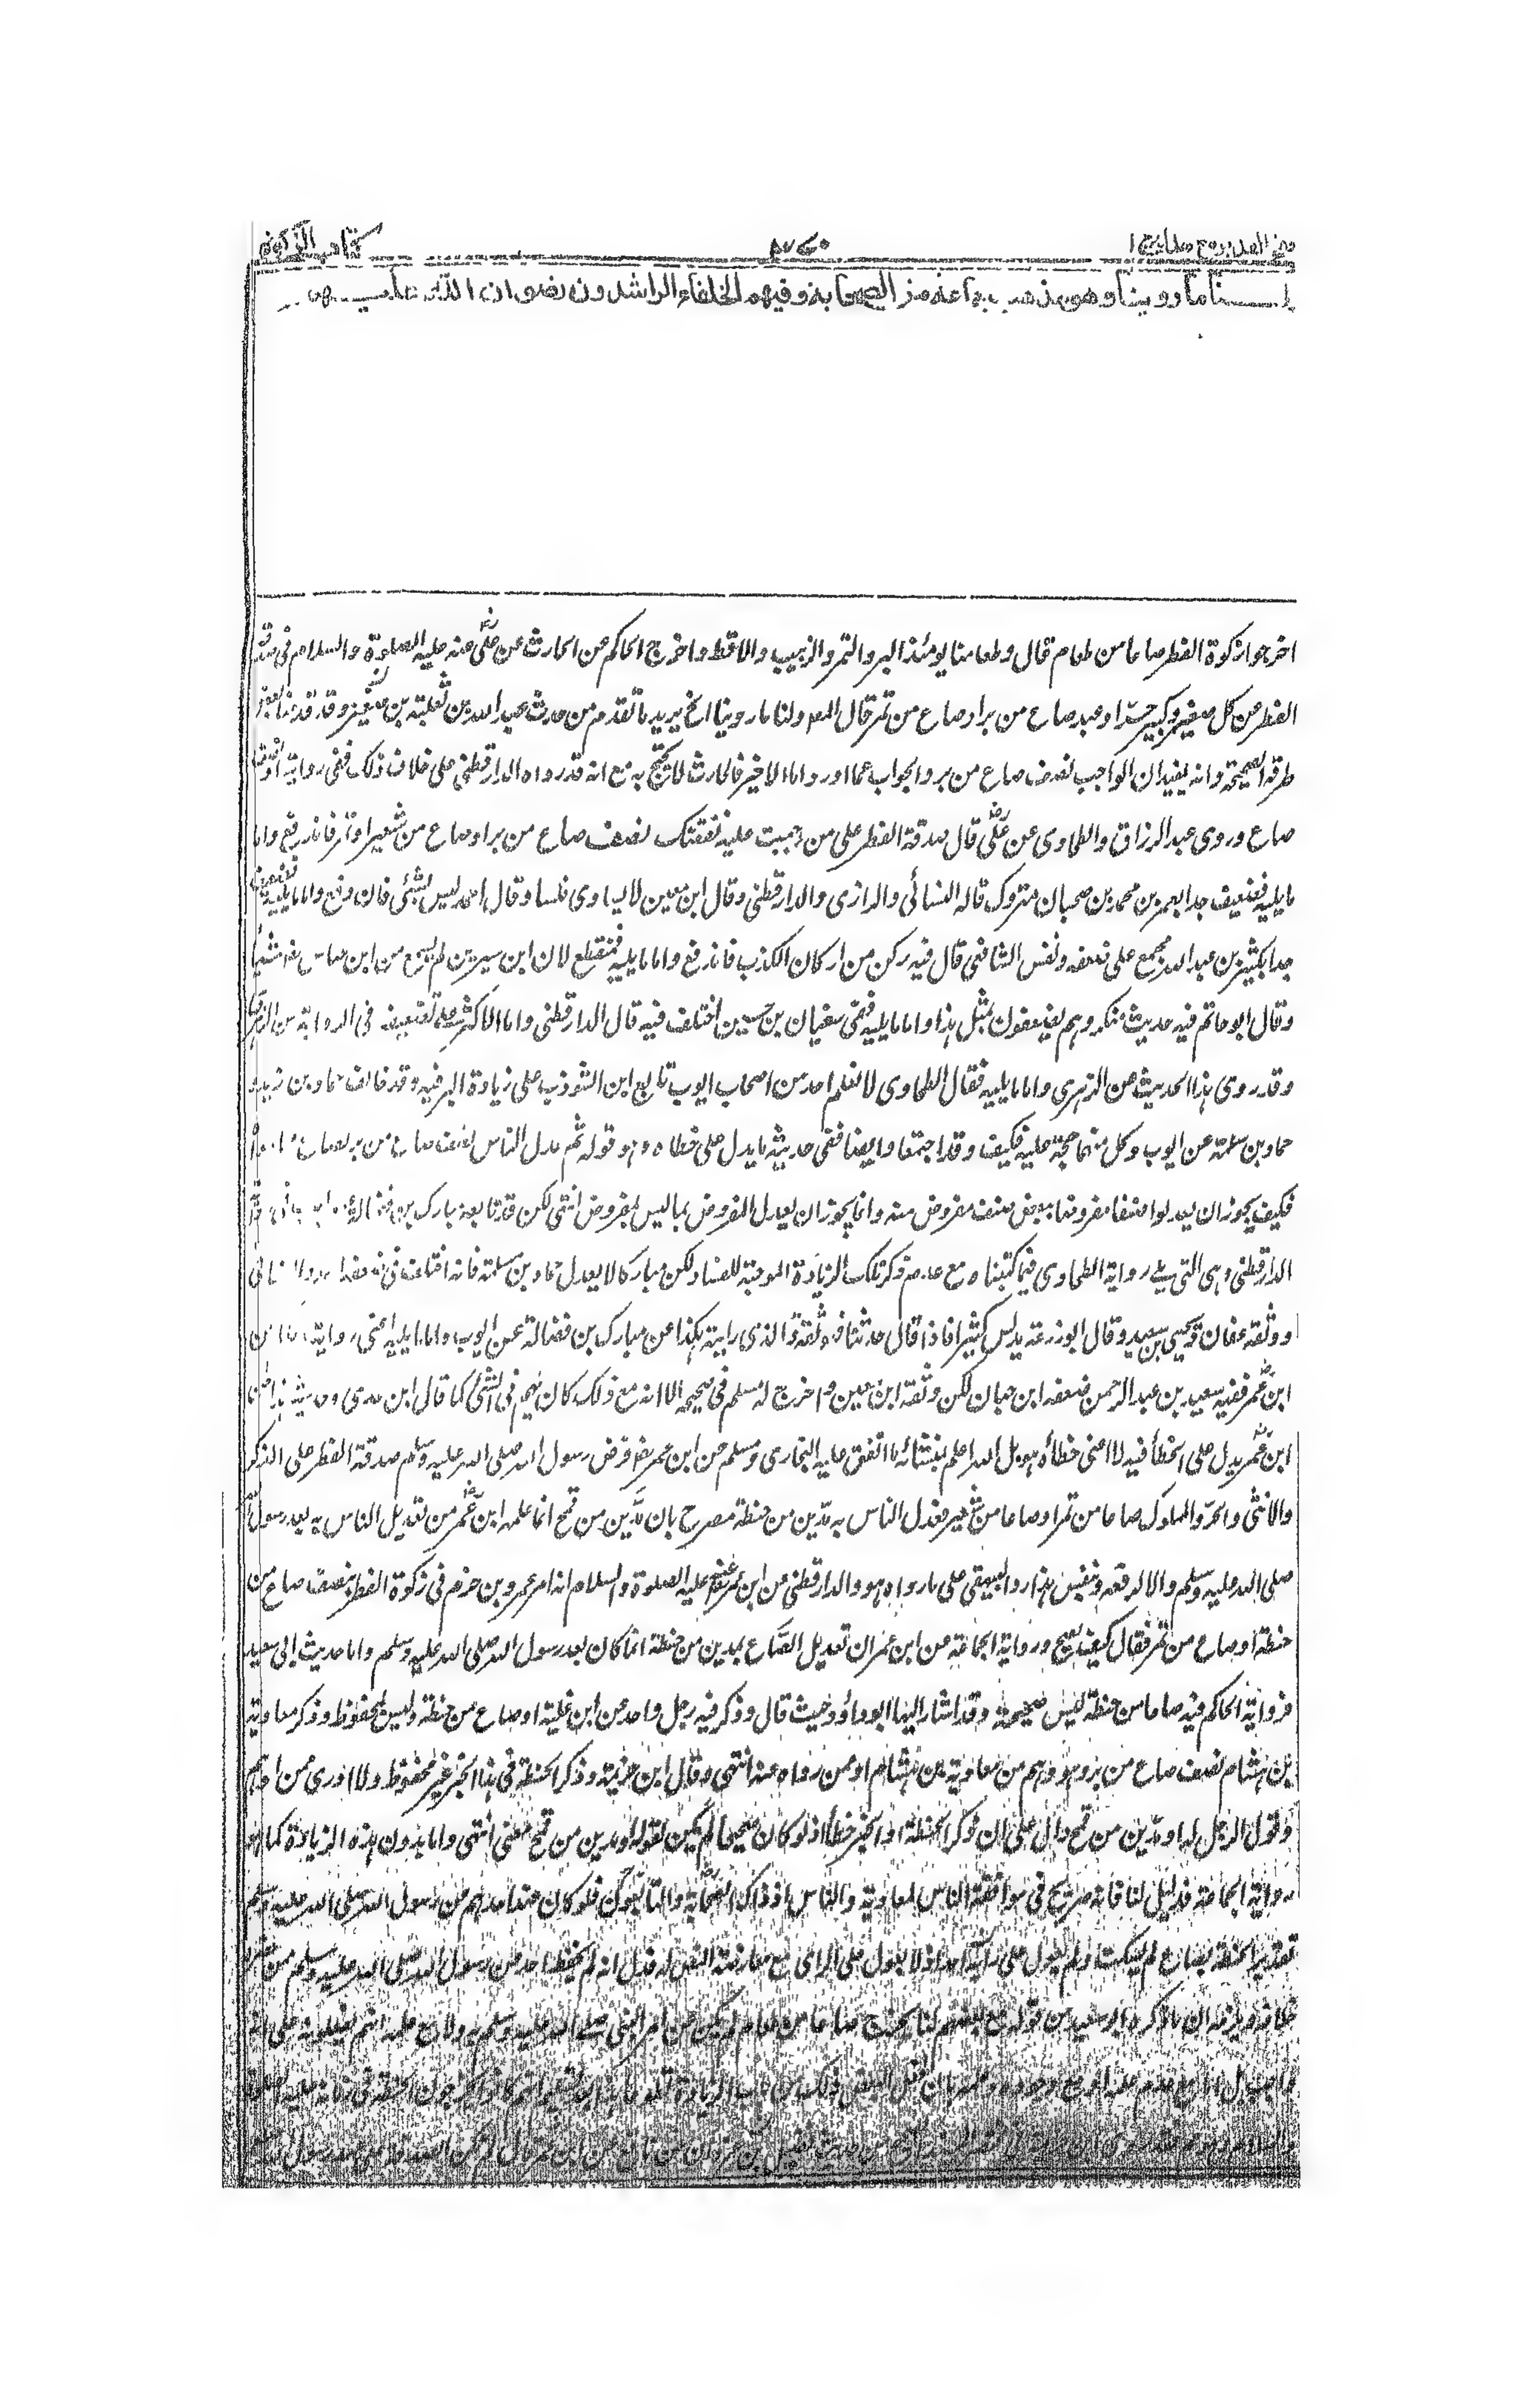 فتح القدير مع هدايه ج ا
كتاب الزكوة
ولنا ما روينا وهو مذهب جماعة من الصحابة وفيهم الخلفاء الراشدون رضوان الله عليهم
اخرجوا زكوة الفطر صاعا من طعام قال وطعامنا يومئذ البر والتمر والزبيب والاقط واخرج الحاكم عن الحارث عن علي عنه عليه الصلوة والسلام في صدقة
الفطر عن كل صغير وكبير حر او عبد صاع من بر او صاع من تمر قال المص ولنا ما روينا الخ يريد ما تقدم من حديث عبد الله بن ثعلبة بن صعير وقد قدمنا بعض
طرقه الصحيحة وانه يفيد ان الواجب نصف صاع من بر والجواب عما اورد اما الاخير فالحارث لا يحتج به مع انه قد رواه الدارقطني على خلاف ذلك ففي رواية او نصف
صاع وروى عبد الرزاق والطحاوي عن علي قال صدقة الفطر على من جبت عليه نفقتك نصف صاع من بر او صاع من شعير او تمر فاندفع واما
ما يليه فضعيف جدا بعمر بن محمد بن صهبان متروك قاله النسائي والرازي والدارقطني وقال ابن معين لا يساوي فلسا وقال احمد ليس بشئي فاندفع واما ما يليه فضعيف
جدا بكثير بن عبد الله مجمع على ضعفه ونفس الشافعي قال فيه ركن من اركان الكذب فاندفع واما ما يليه فمنقطع لان ابن سيرين لم يسمع من ابن عباس شيئا
وقال ابو حاتم فيه حديث منكر وهم يضعفون بمثل هذا واما ما يليه فعن سفيان بن حسين اختلف فيه قال الدارقطني واما الاكثر على تضعيفه في الرواية عن الزهري
وقد روى هذا الحديث عن الزهري واما ما يليه فقال الطحاوي لا نعلم احد من اصحاب ايوب تابع ابن الشوذب على زيادة البر فيه وقد خالفه حماد بن زيد و
حماد بن سلمة عن ايوب وكل منهما حجة عليه فكيف وقد اجتمعا وايضا ففي حديثه ما يدل على خطاه وهو قوله ثم عدل الناس نصف صاع من بر بصاع مما سواه
فكيف يجوز ان يعدلوا صنفا مفروضا ببعض صنف مفروض منه وانما يجوز ان يعدل المفروض بما ليس بمفروض انتهى لكن قد تابعه مبارك بن فضالة
الدارقطني وهي التي يلي رواية الطحاوي فيما كتبناه مع عدم ذكر تلك الزيادة الموجبة للفساد لكن مباركا لا يعدل حماد بن سلمة فانه اختلف فيه ضعفه احمد والنسائي
ووثقه عفان ويحيى بن سعيد وقال ابو زرعة يدلس كثيرا فاذا قال حدثنا فهو ثقة والذي رايته هكذا عن مبارك بن فضالة عن ايوب واما ما يليه اعني رواية
ابن عمر ففيه سعيد بن عبد الرحمن ضعفه ابن حبان لكن وثقه ابن معين واخرج له مسلم في صحيحه الا انه مع ذلك كان يهم في الشئ كما قال ابن عدي وحديثه هذا عن
ابن عمر يدل على الخطأ فيه لا اعني خطأه هو بل الله اعلم بمنشائه ما اتفق عليه البخاري ومسلم عن ابن عمر فرض رسول الله صلى الله عليه وسلم صدقة الفطر على الذكر
والانثى والحر والمملوك صاعا من تمر او صاعا من شعير فعدل الناس به مدين من حنطة مصرح بان مدين من قمح انما علمه ابن عمر من تعديل الناس به بعد رسول الله
صلى الله عليه وسلم والا لرفعه وبنفس هذا رد البيهقي على ما رواه هو والدارقطني عن ابن عمر عنه عليه الصلوة والسلام انه امر عمرو بن حزم في زكوة الفطر بنصف صاع من
حنطة او صاع من تمر فقال كيف يصح ورواية الجماعة عن ابن عمر ان تعديل الصاع بمدين من حنطة انما كان بعد رسول الله صلى الله عليه وسلم واما حديث ابي سعيد
فرواية الحاكم فيه صاعا من حنطة ليس صحيحة وقد اشار اليها ابو داؤد حيث قال وذكر فيه رجل واحد عن ابن علية او صاع من حنطة وليس بمحفوظ وذكر معاوية
بن هشام نصف صاع من بر وهو وهم من معاوية بن هشام او ممن رواه عنه انتهى وقال ابن خزيمة وذكر الحنطة في هذا الخبر غير محفوظ ولا ادري ممن الوهم
وقول الرجل له او مدين من قمح دال على ان ذكر الحنطة اول الخبر خطأ اذ لو كان صحيحا لم يكن لقوله او مدين من قمح معنى انتهى واما بدون هذه الزيادة كما هو
رواية الجماعة فدليل لنا فانه صريح في موافقة الناس لمعاوية والناس اذ ذاك الصحابة والتابعون فلو كان عند احدهم من رسول الله صلى الله عليه وسلم
تقدير الحنطة بصاع لم يسكت ولم يعول على رأيه احد اذ لا يعول على الراي مع معارضة النص له فدل انه لم يحفظه احد من رسول الله صلى الله عليه وسلم
خلافه ويلزمه ان ما ذكره ابو سعيد من قوله مع بعضهم كنا نخرج صاعا من طعام لم يكن عن امر النبي صلى الله عليه وسلم به ولا مع علمه انهم يفعلونه على انه